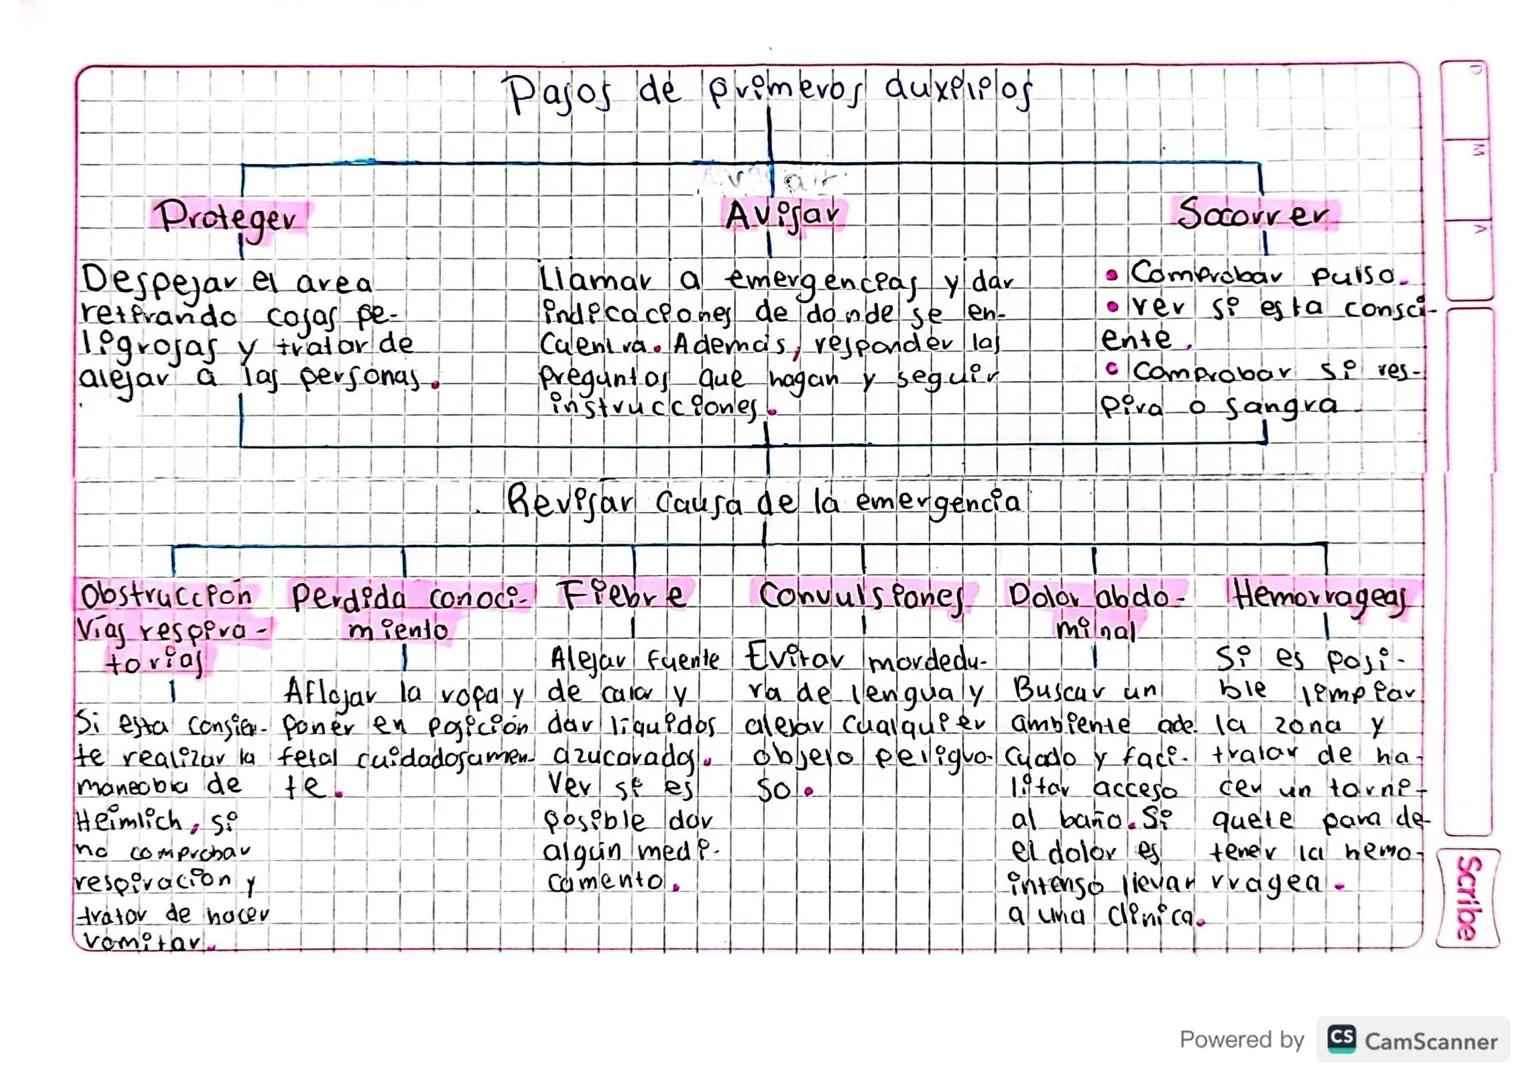 Pasos de primeros auxilios
Proteger
Avisar
Socorrer
Despejar el area
retirando cosas pe-
ligrosas y tratar de
alejar a las personas.
Llamar a emergencias y dar
indicaciones de donde se en-
cuentra. Además, responder las
preguntas que hagan y seguir
instrucciones.
• Comprobar pulso.
• ver si esta consci-
ente.
• Comprobar si res-
pira o sangra
Revisar causa de la emergencia
Obstrucción
Vías respira-
torias
Si esta consien-
te realizar la
maneobra de
Heimlich, si
no comprobar
respiración y
tratar de hacer
vomitar.
Perdida conoci-
miento
Aflojar la ropa y
poner en posición
fetal cuidadosamen-
te.
Fiebre
Alejar fuente
de calor y
dar líquidos
azucarados.
Ver si es
posible dar
algún medi-
camento.
Convulsiones
Evitar mordedu-
ra de lengua y
alejar cualquier
objeto peligro-
so.
Dolor abdo-
minal
Buscar un
ambiente ade-
cuado y faci-
litar acceso
al baño. Si
el dolor es
intenso llevar
a una clínica.
Hemorrageas
Si es posi-
ble limpiar
la zona y
tratar de ha-
cer un torni-
quete para de-
tener la hemo-
rragea.
D
M
A
Scribe
Powered by CS CamScanner